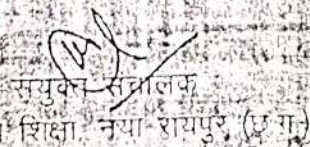 संयुक्त संचालक
शिक्षा, नया रायपुर (छ.ग.)